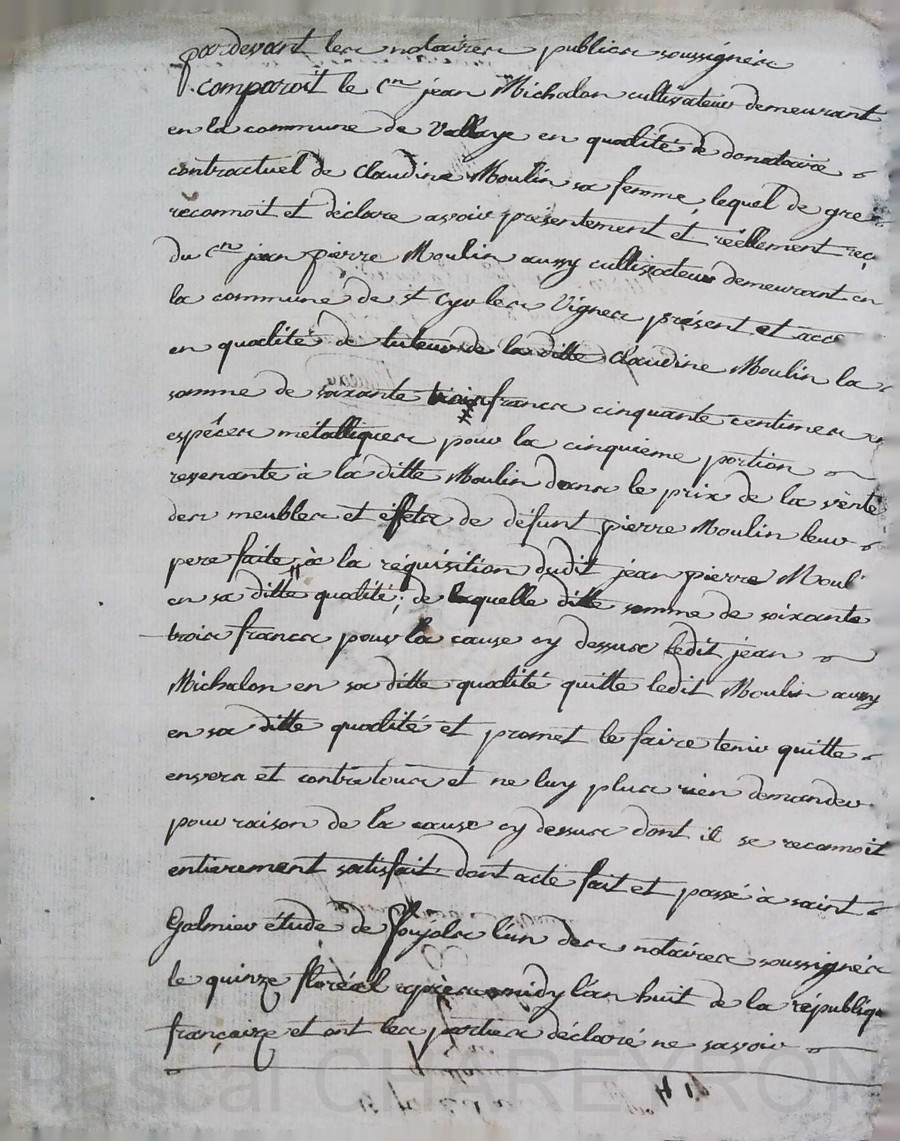 pardevant les notaires publics soussignés
comparoit le cn jean Michalon cultivateur demeurant
en la commune de en qualité de donataire
contractuel de Claudine Moulin sa femme, lequel de gré
reconnoit et déclare avoir présentement et réellement reç
du cn jean pierre Moulin aussy cultivateur demeurant en
la commune de st Cyr les Vignes présent et acce
en qualité de tuteur de la ditte Claudine Moulin la
somme de soixante trois francs cinquante centimes en
espéces métalliques pour la cinquieme portion
revenante à la ditte Moulin dans le prix de la vente
des meubles et effets de défunt pierre Moulin leur
pere faite à la réquisition dudit jean pierre Moul
en sa ditte qualité; de laquelle ditte somme de soixante
trois francs pour la cause cy dessus ledit jean
Michalon en sa ditte qualité quitte ledit Moulin aussy
en sa ditte qualité et promet le faire tenir quitte
envers et contre tous et ne luy plus rien demander
pour raison de la cause cy dessus dont il se reconnoit
entierement satisfait dont acte fait et passé à saint
Galmier étude de l'un des notaires soussignés
le quinze floréal après midy l'an huit de la républiqu
françaize et ont les parties déclaré ne savoir
Pascal CHAREYRON